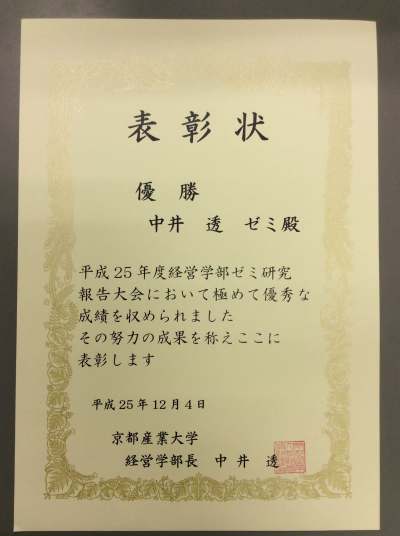 表彰状
優勝
中井 透 ゼミ殿
平成25年度経営学部ゼミ研究
報告大会において極めて優秀な
成績を収められました
その努力の成果を称えここに
表彰します
平成25年12月4日
京都産業大学
経営学部長 中井 透